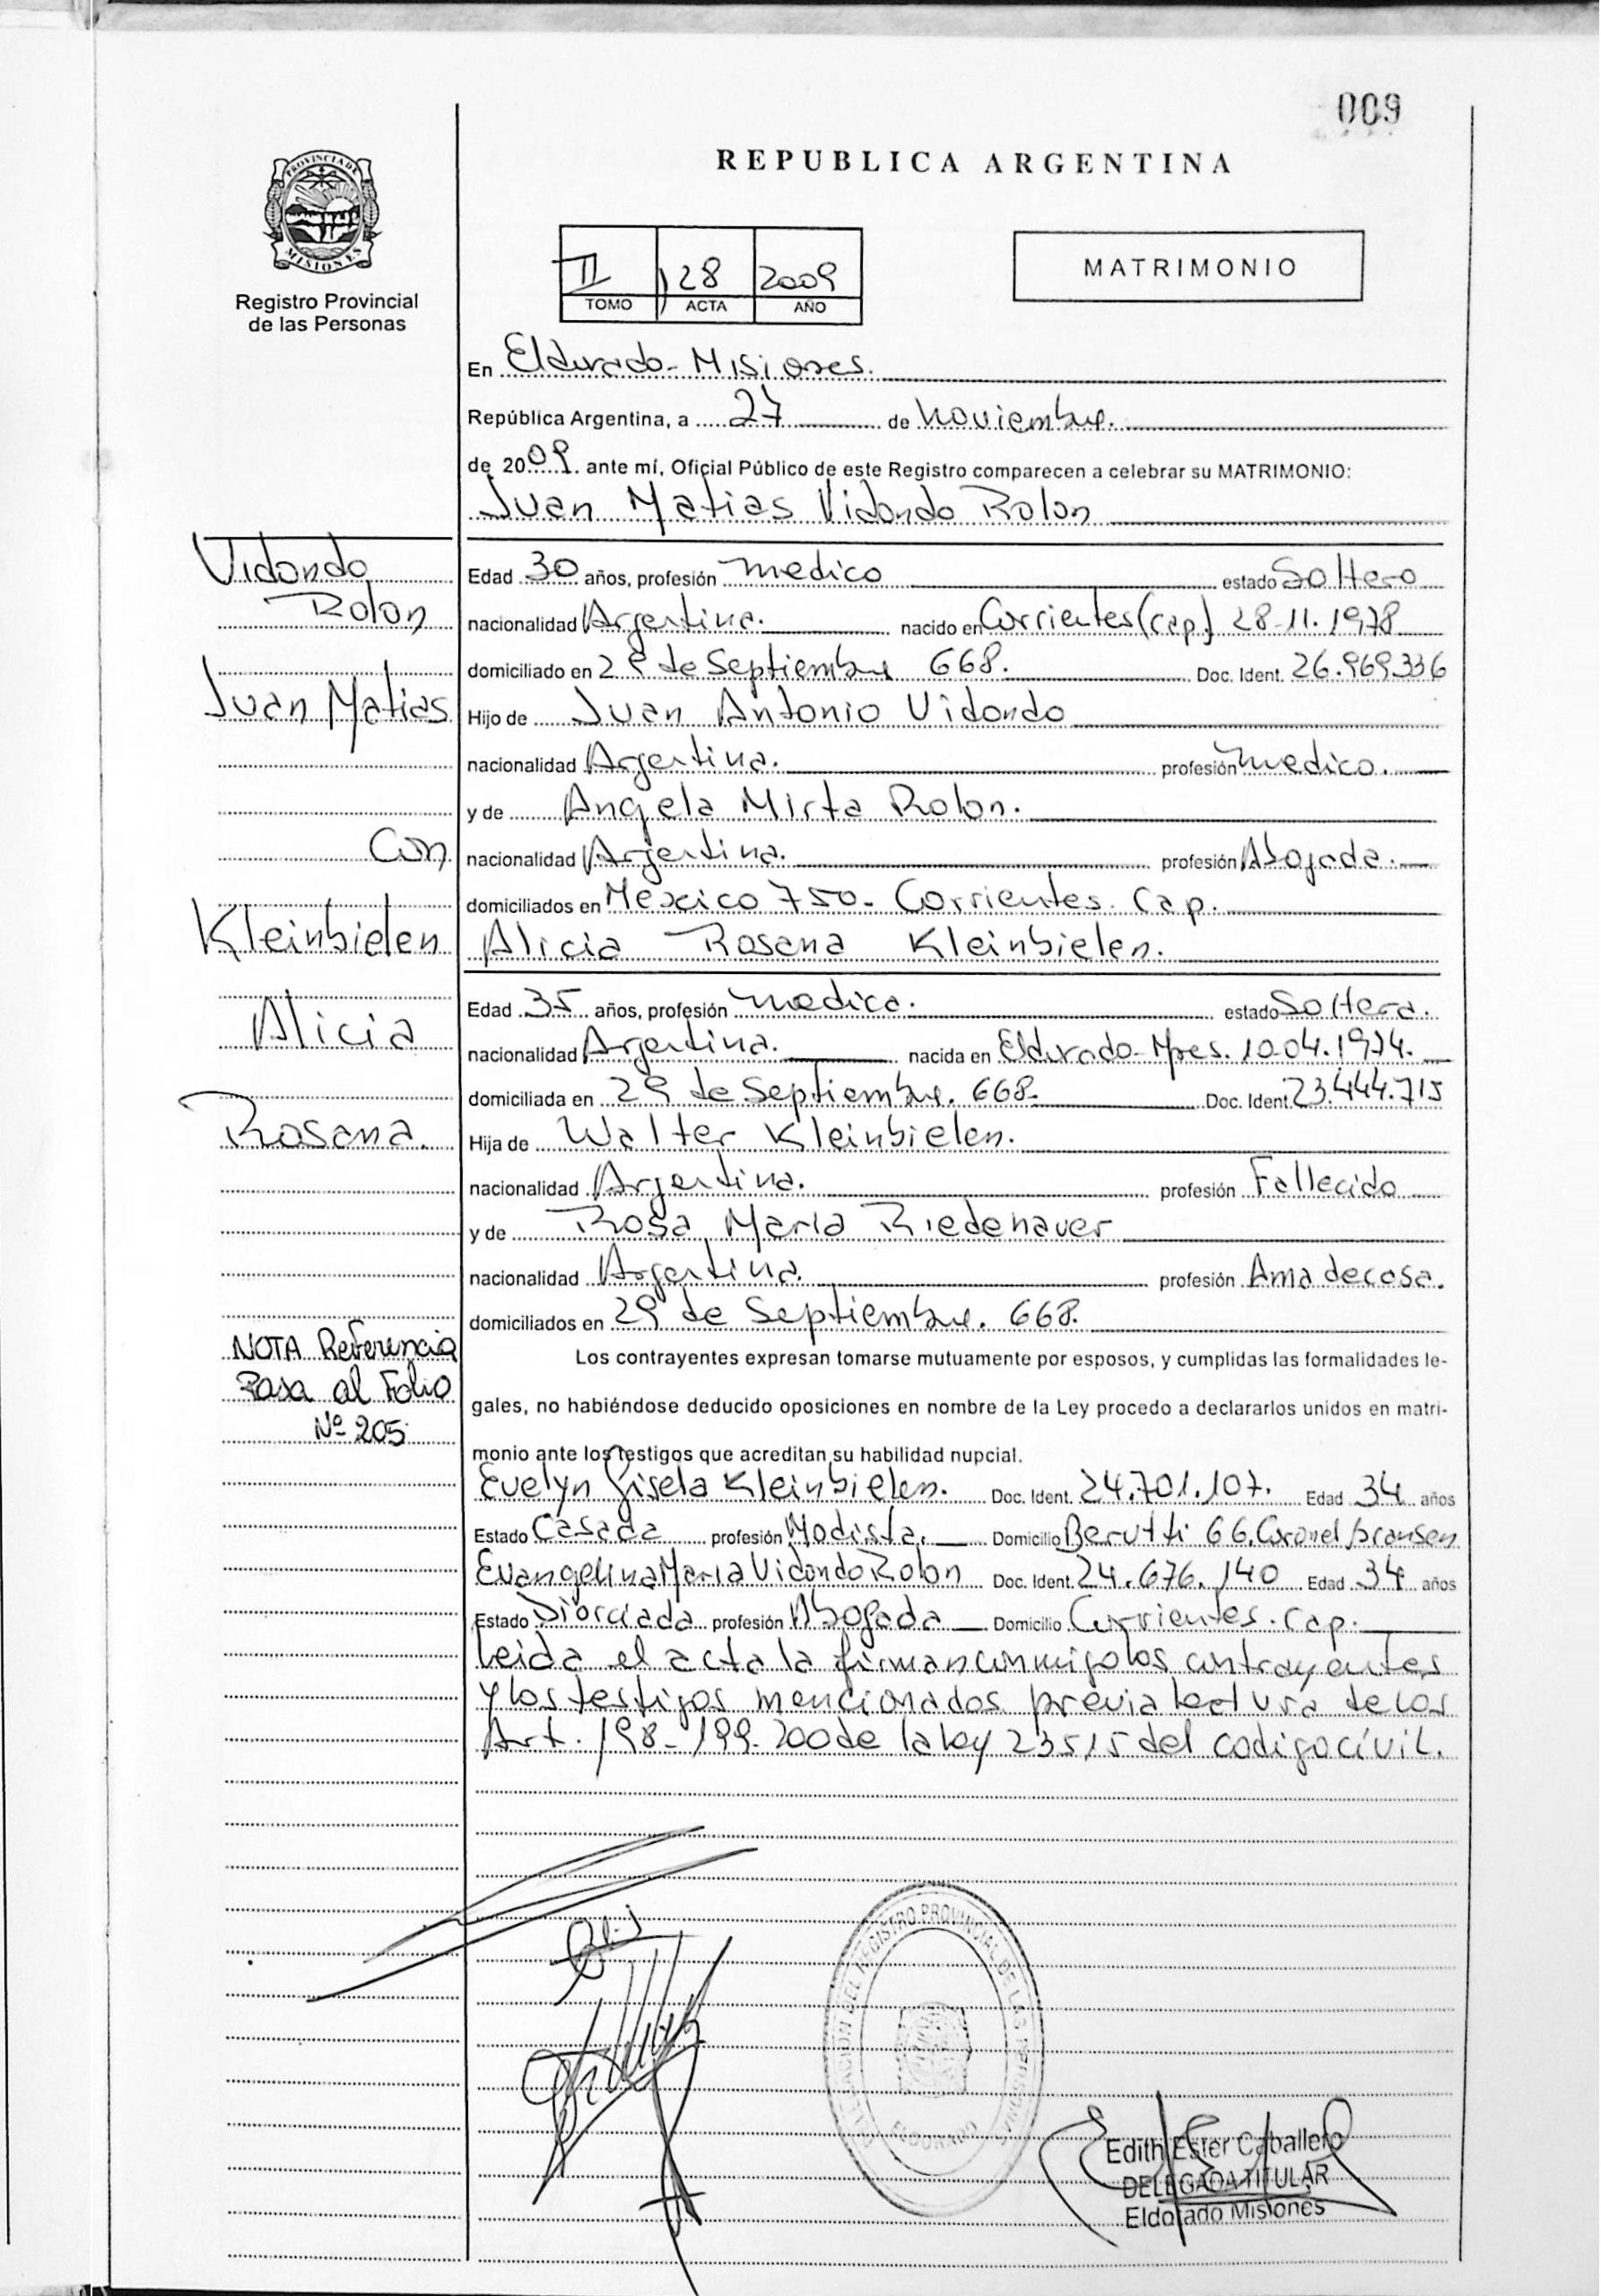 009
REPUBLICA ARGENTINA
PROVINCIA DE
MISIONES
Registro Provincial
de las Personas
II 128 2009
TOMO ACTA AÑO
MATRIMONIO
En Eldorado - Misiones.
República Argentina, a 27 de noviembre.
de 2009. ante mí, Oficial Público de este Registro comparecen a celebrar su MATRIMONIO:
Juan Matias Vidondo Rolon
Vidondo
Rolon
Juan Matias
Con
Kleinbielen
Alicia
Rosana.
Edad 30 años, profesión medico estado Soltero
nacionalidad Argentina. nacido en Corrientes (cap.) 28-11.1978
domiciliado en 29 de Septiembre 668. Doc. Ident. 26.969.336
Hijo de Juan Antonio Vidondo
nacionalidad Argentina. profesión medico.
y de Angela Mirta Rolon.
nacionalidad Argentina. profesión Abogada.
domiciliados en Mexico 750 - Corrientes. Cap.
Alicia Rosana Kleinbielen.
Edad 35 años, profesión medica. estado Soltera.
nacionalidad Argentina. nacida en Eldorado - Mnes. 10-04.1974.
domiciliada en 29 de Septiembre. 668. Doc. Ident. 23.444.715
Hija de Walter Kleinbielen.
nacionalidad Argentina. profesión Fallecido
y de Rosa Maria Riedenauer
nacionalidad Argentina. profesión Ama de casa.
domiciliados en 29 de Septiembre. 668.
NOTA Referencia
Pasa al Folio
Nº 205
Los contrayentes expresan tomarse mutuamente por esposos, y cumplidas las formalidades le-
gales, no habiéndose deducido oposiciones en nombre de la Ley procedo a declararlos unidos en matri-
monio ante los testigos que acreditan su habilidad nupcial.
Evelyn Gisela Kleinbielen. Doc. Ident. 24.701.107. Edad 34 años
Estado Casada profesión Modista. Domicilio Berutti 66. Coronel Bransen
Evangelina Maria Vidondo Rolon Doc. Ident. 24.676.140 Edad 34 años
Estado Diorciada profesión Abogada Domicilio Corrientes. Cap.
Leida el acta la firman conmigo los contrayentes
y los testigos mencionados previa lectura de los
Art. 198-199-200 de la ley 23515 del codigo civil.
DELEGACION DEL REGISTRO PROVINCIAL DE LAS PERSONAS
ELDORADO
Edith Ester Caballero
DELEGADA TITULAR
Eldorado Misiones